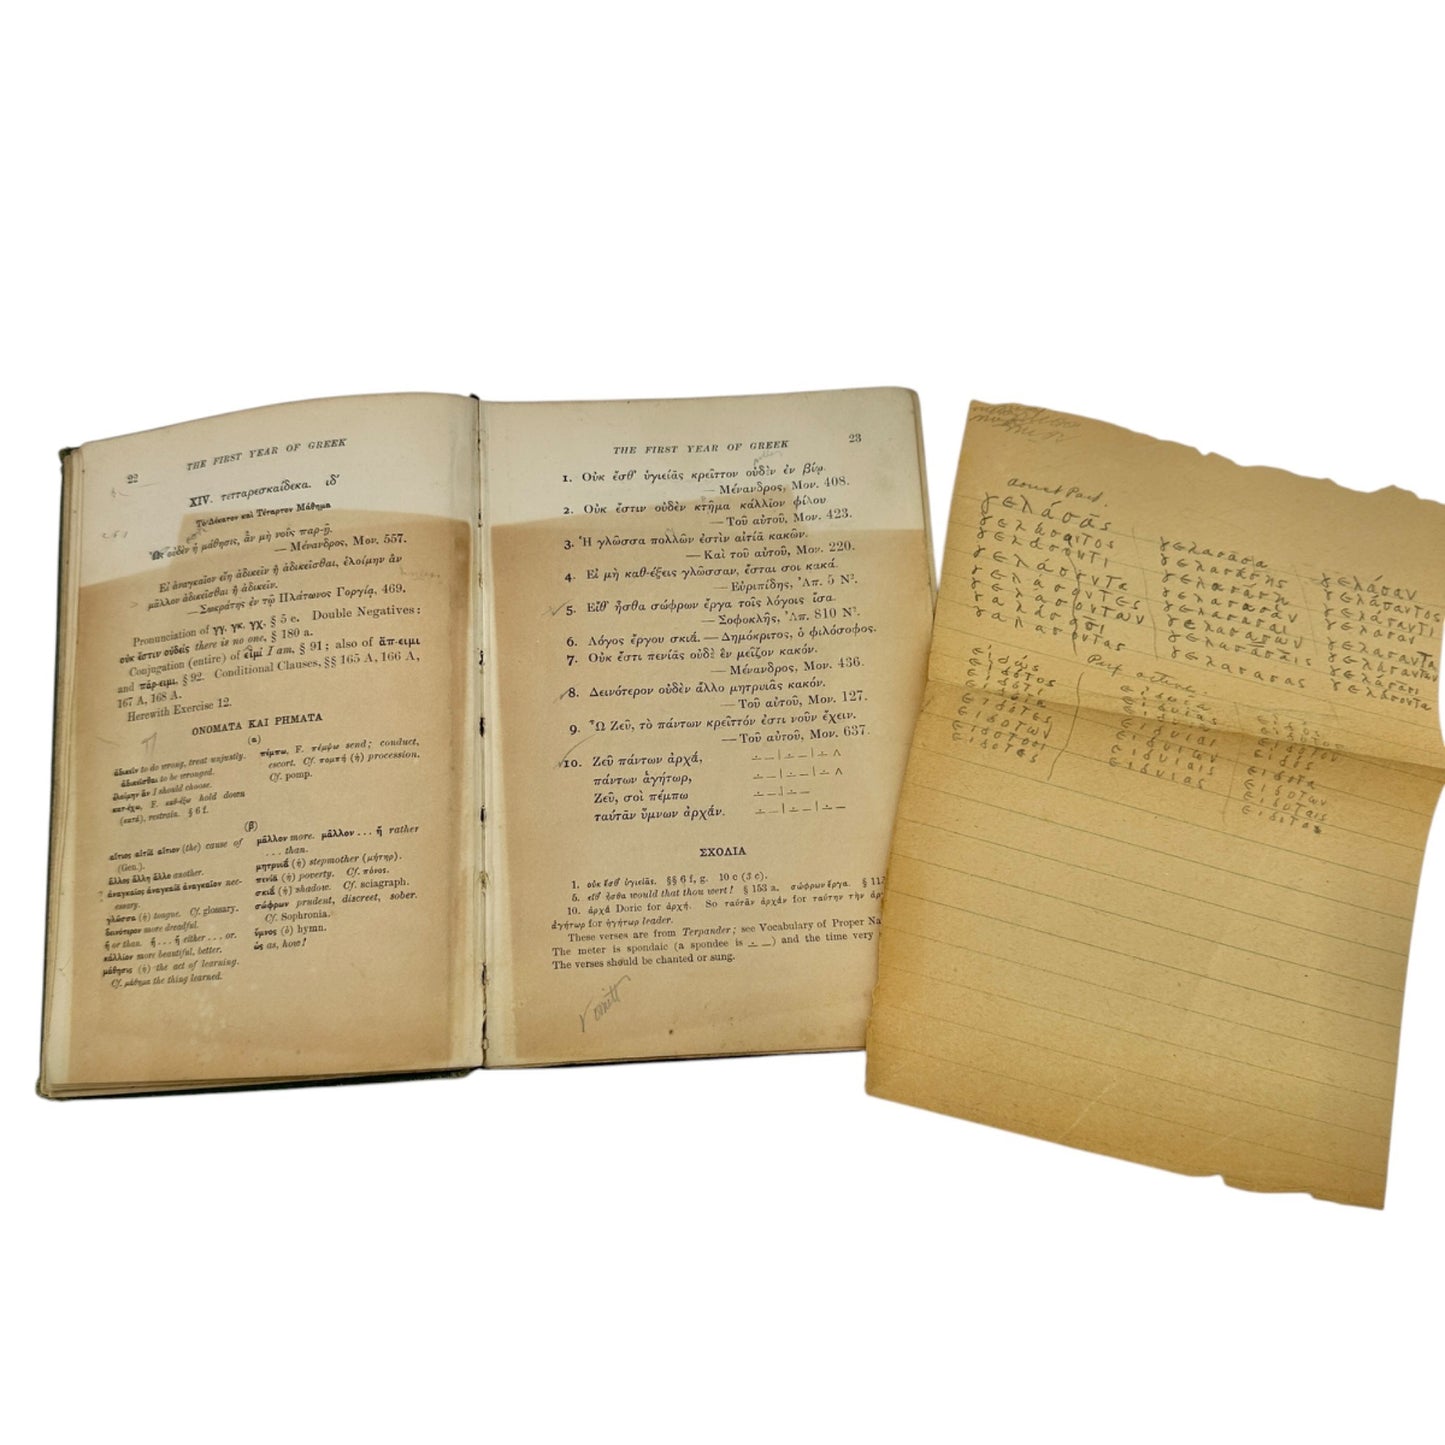 22
THE FIRST YEAR OF GREEK
XIV. τετταρεσκαίδεκα. ιδ′
Τὸ Δέκατον καὶ Τέταρτον Μάθημα
Ὡς οὐδὲν ἡ μάθησις, ἂν μὴ νοῦς παρ-ῇ.
— Μένανδρος, Μον. 557.
Εἰ ἀναγκαῖον εἴη ἀδικεῖν ἢ ἀδικεῖσθαι, ἑλοίμην ἂν
μᾶλλον ἀδικεῖσθαι ἢ ἀδικεῖν.
— Σωκράτης ἐν τῷ Πλάτωνος Γοργίᾳ, 469.
Pronunciation of γγ, γκ, γχ, § 5 e. Double Negatives:
οὐκ ἔστιν οὐδείς there is no one, § 180 a.
Conjugation (entire) of εἰμί I am, § 91; also of ἄπ-ειμι
and πάρ-ειμι, § 92. Conditional Clauses, §§ 165 A, 166 A,
167 A, 168 A.
Herewith Exercise 12.
ΟΝΟΜΑΤΑ ΚΑΙ ΡΗΜΑΤΑ
(α)
ἀδικεῖν to do wrong, treat unjustly.
ἀδικεῖσθαι to be wronged.
ἑλοίμην ἄν I should choose.
κατ-έχω, F. καθ-έξω hold down
(κατά), restrain. § 6 f.
πέμπω, F. πέμψω send; conduct,
escort. Cf. πομπή (ἡ) procession.
Cf. pomp.
(β)
αἴτιος αἰτίᾱ αἴτιον (the) cause of
(Gen.).
ἄλλος ἄλλη ἄλλο another.
ἀναγκαῖος ἀναγκαίᾱ ἀναγκαῖον nec-
essary.
γλῶσσα (ἡ) tongue. Cf. glossary.
δεινότερον more dreadful.
ἤ or than. ἤ . . . ἤ either . . . or.
κάλλῑον more beautiful, better.
μάθησις (ἡ) the act of learning.
Cf. μάθημα the thing learned.
μᾶλλον more. μᾶλλον . . . ἤ rather
. . . than.
μητρυιᾱ́ (ἡ) stepmother (μήτηρ).
πενίᾱ (ἡ) poverty. Cf. πόνος.
σκιᾱ́ (ἡ) shadow. Cf. sciagraph.
σώφρων prudent, discreet, sober.
Cf. Sophronia.
ὕμνος (ὁ) hymn.
ὡς as, how!
THE FIRST YEAR OF GREEK
23
1. Οὐκ ἔσθ' ὑγιείᾱς κρεῖττον οὐδὲν ἐν βίῳ.
— Μένανδρος, Μον. 408.
2. Οὐκ ἔστιν οὐδὲν κτῆμα κάλλῑον φίλου
— Τοῦ αὐτοῦ, Μον. 423.
3. Ἡ γλῶσσα πολλῶν ἐστὶν αἰτίᾱ κακῶν.
— Καὶ τοῦ αὐτοῦ, Μον. 220.
4. Εἰ μὴ καθ-έξεις γλῶσσαν, ἔσται σοι κακά.
— Εὐριπίδης, Ἀπ. 5 N².
5. Εἴθ' ἦσθα σώφρων ἔργα τοῖς λόγοις ἴσα.
— Σοφοκλῆς, Ἀπ. 810 N².
6. Λόγος ἔργου σκιᾱ́. — Δημόκριτος, ὁ φιλόσοφος.
7. Οὐκ ἔστι πενίᾱς οὐδὲ ἓν μεῖζον κακόν.
— Μένανδρος, Μον. 436.
8. Δεινότερον οὐδὲν ἄλλο μητρυιᾶς κακόν.
— Τοῦ αὐτοῦ, Μον. 127.
9. Ὦ Ζεῦ, τὸ πάντων κρεῖττόν ἐστι νοῦν ἔχειν.
— Τοῦ αὐτοῦ, Μον. 637.
10. Ζεῦ πάντων ἀρχᾱ́,
πάντων ἁγήτωρ,
Ζεῦ, σοὶ πέμπω
ταύτᾱν ὕμνων ἀρχᾱ́ν.
ΣΧΟΛΙΑ
1. οὐκ ἔσθ' ὑγιείᾱς. §§ 6 f, g. 10 c (3 c).
5. εἴθ' ἦσθα would that thou wert! § 153 a. σώφρων ἔργα. §
10. ἀρχᾱ́ Doric for ἀρχή. So ταύτᾱν ἀρχᾱ́ν for ταύτην τὴν
ἁγήτωρ for ἡγήτωρ leader.
These verses are from Terpander; see Vocabulary of Proper
The meter is spondaic (a spondee is) and the time very
The verses should be chanted or sung.
omitt
aorist Part.
γελάσᾱς
γελάσαντος
γελάσαντι
γελάσαντα
γελάσαντες
γελασάντων
γελάσᾱσι
γελασασα
γελασάσης
γελασάσῃ
γελασασαν
γελασασαι
γελασασων
γελασάσαις
γελασασας
γελάσαν
γελάσαντος
γελάσαντι
γελασαν
γελασαντα
γελασαντων
γελάσασι
γελάσαντα
Perf active
εἰδώς
εἰδότος
εἰδότι
εἰδότα
εἰδότες
εἰδότων
εἰδοτας
εἰδυῖα
εἰδυίας
εἰδυιᾳ
εἰδυιαι
εἰδυιων
εἰδυιαις
εἰδυιας
εἰδός
εἰδοτα
εἰδοτων